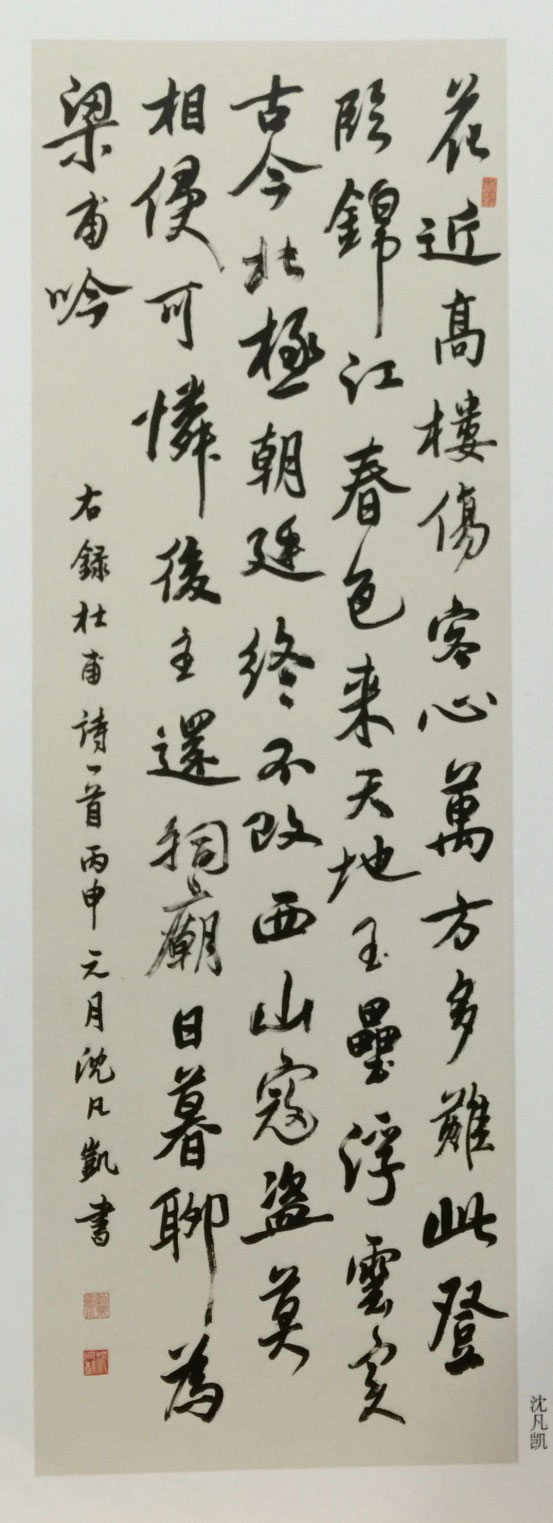 花近高樓傷客心萬方多難此登
臨錦江春色来天地玉壘浮雲变
古今北極朝廷終不改西山寇盗莫
相侵可憐後主還祠廟日暮聊為
梁甫吟
右録杜甫詩一首丙申元月沈凡凱書
沈凡凯